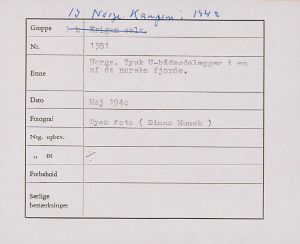 13 Norge. Kampen: 1940
Gruppe b. Krigen selv.
Nr. 1381
Emne Norge. Tysk U-bådsødelægger i en
af de norske fjorde.
Dato Maj 1940
Fotograf Tysk foto ( Einar Munck )
Neg. opbev.
„ nr
Forbehold
Særlige
bemærkninger